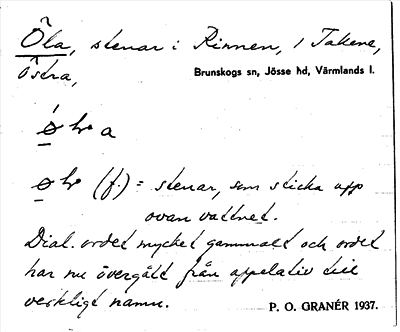 Öla, stenar i Rinnen, i Takene,
östra,
Brunskogs sn, Jösse hd, Värmlands l.
a
(f.) = stenar, som sticka upp
ovan vattnet.
Dial. ordet mycket gammalt och ordet
har nu övergått från appelativ till
verkligt namn.
P. O. GRANÉR 1937.